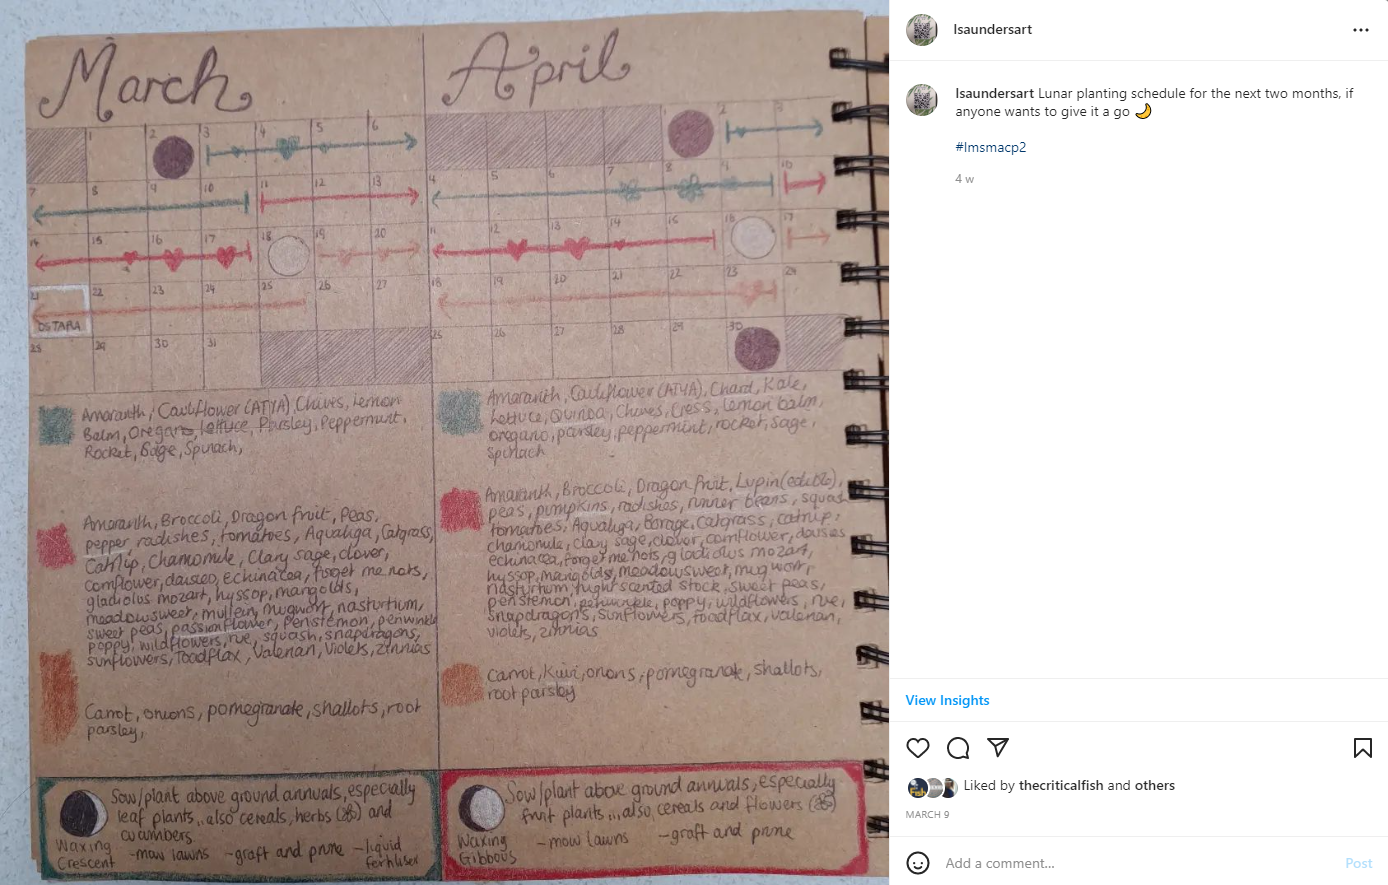 March
April
1 2 3 4 5 6
1 2 3
7 8 9 10 11 12 13
4 5 6 7 8 9 10
14 15 16 17 18 19 20
11 12 13 14 15 16 17
21 22 23 24 25 26 27
18 19 20 21 22 23 24
OSTARA
28 29 30 31
25 26 27 28 29 30
Amaranth, Cauliflower (ATYA) Chives, Lemon
Balm, Oregano, lettuce, Parsley, Peppermint,
Rocket, Sage, Spinach,
Amaranth, Broccoli, Dragon fruit, Peas,
pepper, radishes, tomatoes, Aqualigia, Catgrass,
Catnip, Chamomile, Clary sage, clover,
cornflower, daisies, echinacea, forget me nots,
gladiolus mozart, hyssop, marigolds,
meadowsweet, mullein, mugwort, nasturtium,
sweet peas, passionflower, penstemon, periwinkle
poppy, wildflowers, rue, squash, snapdragons,
sunflowers, Toadflax, Valerian, Violets, zinnias
Carrot, onions, pomegranate, shallots, root
parsley,
Amaranth, Cauliflower (ATYA), Chard, Kale,
lettuce, Quinoa, Chives, Cress, lemon balm,
oregano, parsley, peppermint, rocket, sage,
spinach
Amaranth, Broccoli, Dragon fruit, Lupin (edible),
peas, pumpkins, radishes, runner beans, squash
tomatoes, Borage, Catgrass, catnip,
chamomile, clary sage, clover, cornflower, daisies
echinacea, forget me nots, gladiolus mozart,
hyssop, marigolds, meadowsweet, mugwort,
nasturtium, night scented stock, sweet peas,
penstemon, periwinkle, poppy, wildflowers, rue,
snapdragons, sunflowers, toadflax, valerian,
violets, zinnias
Carrot, Kiwi, onions, pomegranate, shallots,
root parsley
Sow/plant above ground annuals, especially
leaf plants... also cereals, herbs and
cucumbers
Waxing
Crescent
-mow lawns -graft and prune -liquid
fertiliser
Sow/plant above ground annuals, especially
fruit plants... also cereals and flowers
Waxing
Gibbous
-mow lawns -graft and prune
lsaundersart
lsaundersart Lunar planting schedule for the next two months, if
anyone wants to give it a go 🌙
#lmsmacp2
4 w
View Insights
Liked by thecriticalfish and others
MARCH 9
Add a comment...
Post